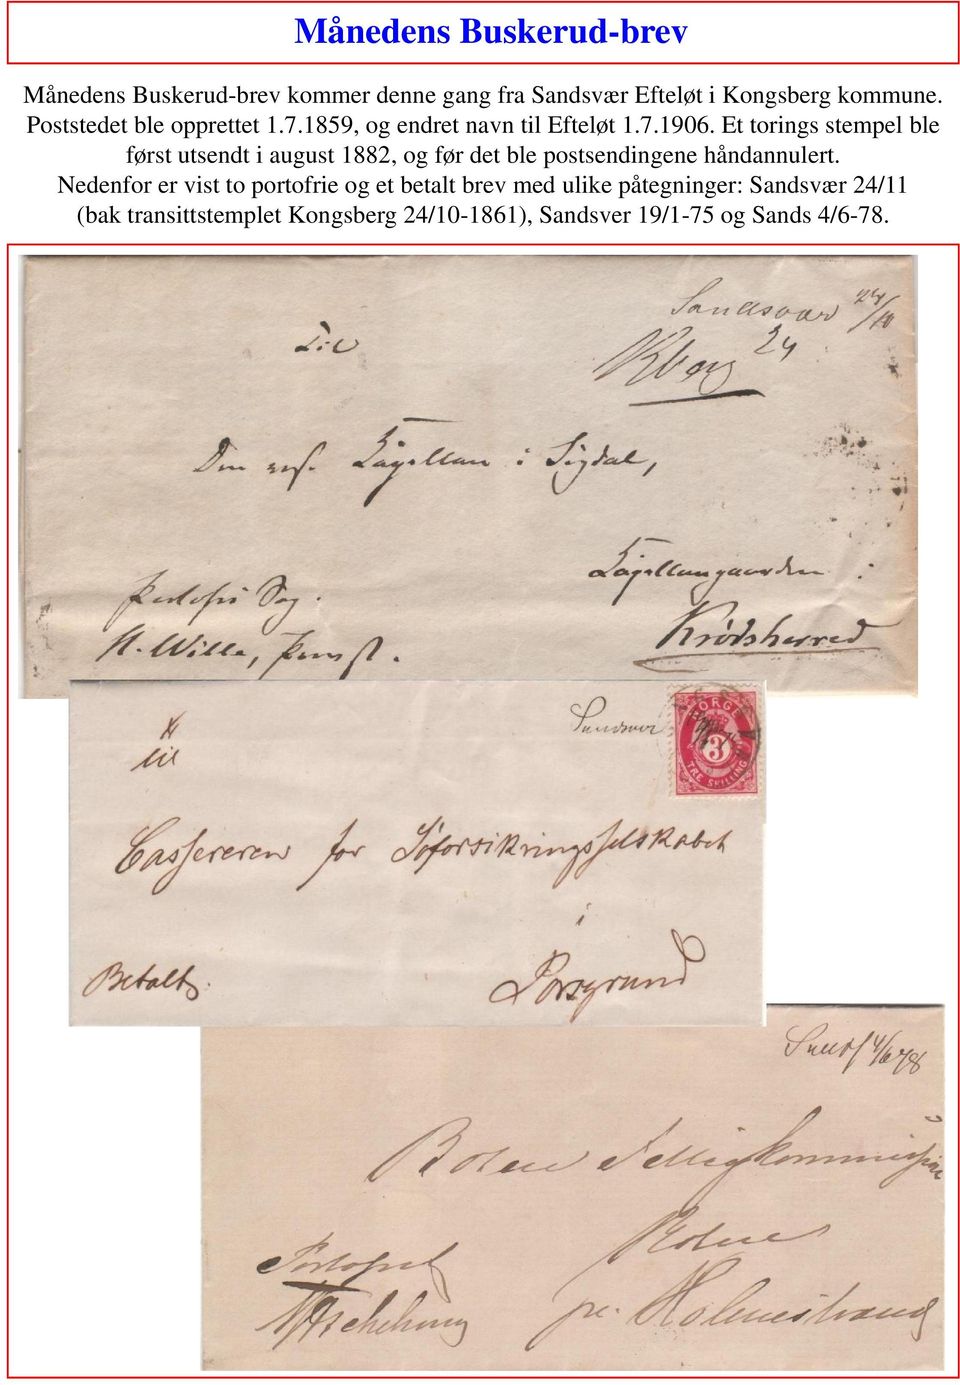 Månedens Buskerud-brev
Månedens Buskerud-brev kommer denne gang fra Sandsvær Efteløt i Kongsberg kommune.
Poststedet ble opprettet 1.7.1859, og endret navn til Efteløt 1.7.1906. Et torings stempel ble
først utsendt i august 1882, og før det ble postsendingene håndannulert.
Nedenfor er vist to portofrie og et betalt brev med ulike påtegninger: Sandsvær 24/11
(bak transittstemplet Kongsberg 24/10-1861), Sandsver 19/1-75 og Sands 4/6-78.
Sandsvær 24/10
Til
Kberg 24
Den Capellan i Sigdal,
Capellangaarden i
Portofri Sag.
Krødsherred
H. Wille,
Sandsver
NORGE
3
TRE SKILLING
til
Cassereren for Søforsikringsselskabet
i
Betalt.
Porsgrund
Sands 4/6 78
Botne
Botne
pr. Holmestrand